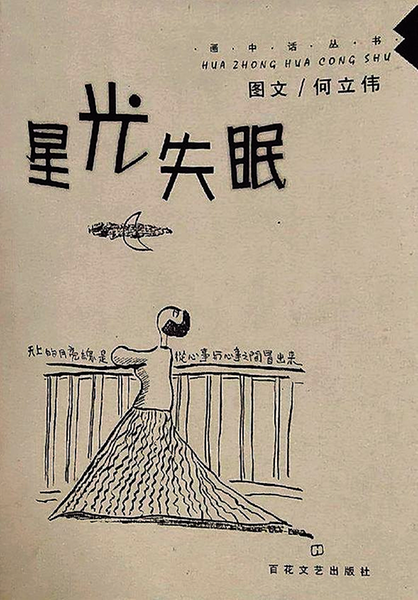 ·画·中·话·丛·书·
HUA ZHONG HUA CONG SHU
图文/何立伟
星光失眠
天上的月亮总是 從心事与心事之间冒出来
百花文艺出版社